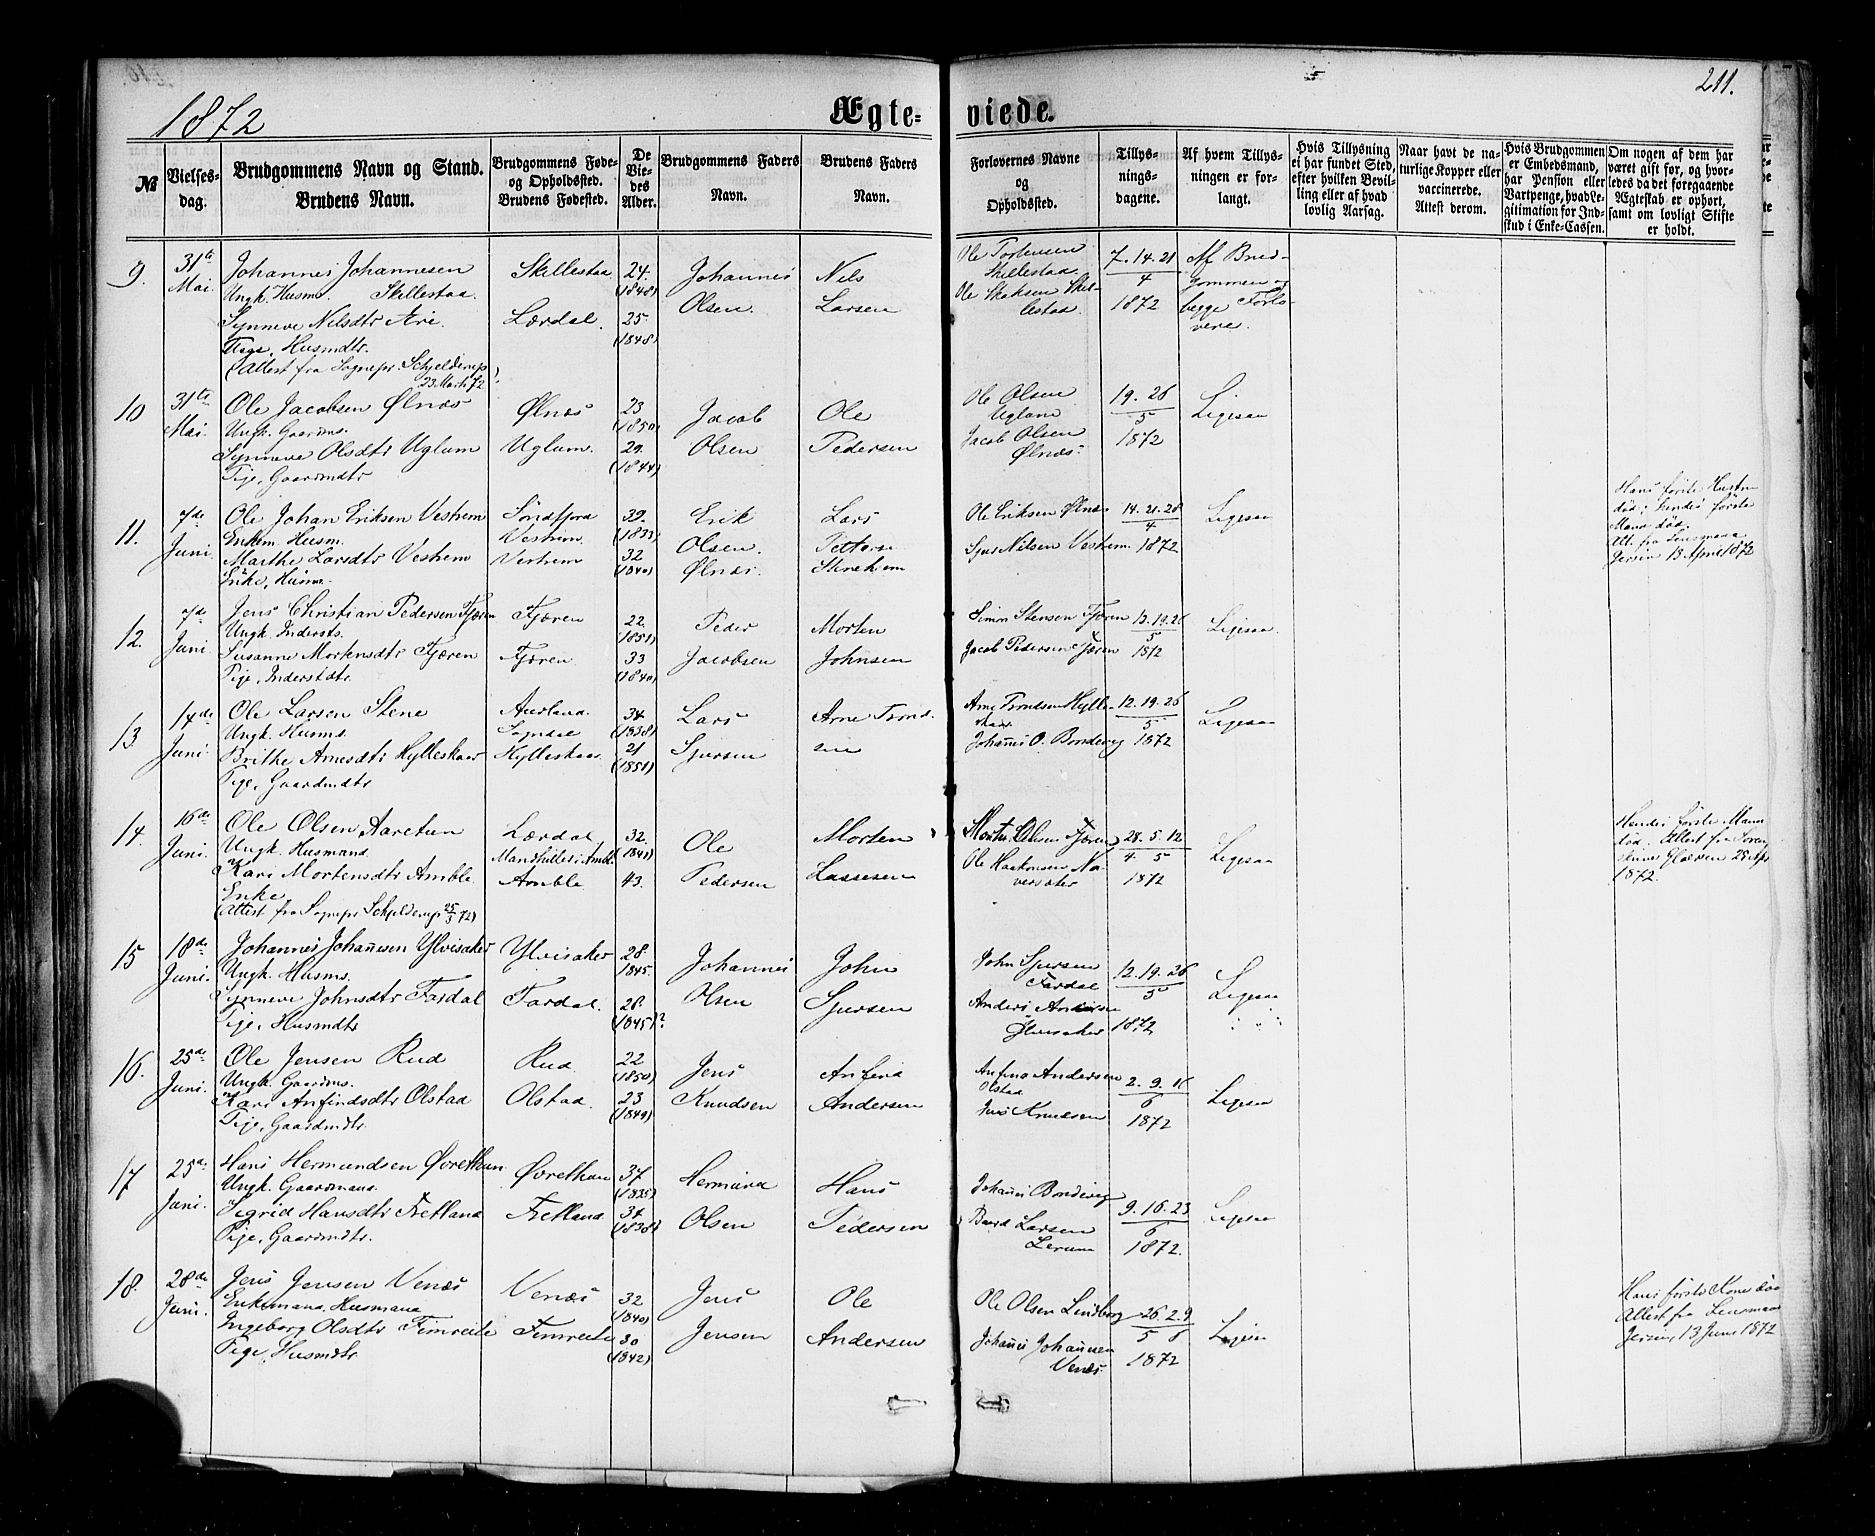 1872
Ægte-
viede.
211.
№
Vielses-
dag.
Brudgommens Navn og Stand.
Brudens Navn.
Brudgommens Føde-
og Opholdssted.
Brudens Fødested.
De
Vie-
des
Alder.
Brudgommens Faders
Navn.
Brudens Faders
Navn.
Forlovernes Navne
og
Opholdssted.
Tillys-
nings-
dagene.
Af hvem Tillys-
ningen er for-
langt.
Hvis Tillysning
ei har fundet Sted,
efter hvilken Bevil-
ling eller af hvad
lovlig Aarsag.
Naar havt de na-
turlige Kopper eller
vaccinerede.
Attest derom.
Hvis Brudgommen
er Embedsmand,
har Pension eller
Vartpenge, hvad Le-
gitimation for Ind-
skud i Enke-Cassen.
Om nogen af dem har
været gift før, og hvor-
ledes da det foregaaende
Ægteskab er ophørt,
samt om lovligt Skifte
er holdt.
9.
31te
Mai.
Johannes Johannesen
Ungk. Husms. Skillestaa.
Synneve Nilsdtr Æri.
Pige, Husmdtr.
(Attest fra Sognepr Schjelderup
23 Marts 72)
Skillestaa
Lærdal.
24.
(1848)
25.
(1848)
Johannes
Olsen.
Nils
Larsen
Ole Torstensen
Skillestaa
Ole Skaksen Skil-
lestaa.
7. 14. 21
4
1872
Af Brud-
gommen og
begge Forlo-
vere.
10
31te
Mai.
Ole Jacobsen Ølnæs
Ungk. Gaardms.
Synneve Olsdtr Uglum
Pige, Gaardmdtr
Ølnæs
Uglum.
23
(1850)
29.
(1844)
Jacob
Olsen
Ole
Pedersen
Ole Olsen
Uglum
Jacob Olsen
Ølnæs.
19. 26
5
1872
Ligesaa
11.
7de
Juni.
Ole Johan Eriksen Vestrem
Enkem. Husm.
Marthe Larsdtr Vestrem
Enke, Husm.
Søndfjord
Vestrem.
Vestrem
39.
(1833)
32
(1840)
Erik
Olsen.
Ølnæs.
Lars
Petters
Stenehjem
Ole Eriksen Ølnæs
Sjur Nilsen Vestrem.
14. 21. 28
4
1872
Ligesaa
Hans første Hustru
død; hendes første
Mand død.
Att. fra Lensmand
Jersin 13 April 1872
12.
7de
Juni.
Jens Christian Pedersen Fjæren
Ungk. Indersts.
Susanne Mortensdtr Fjæren
Pige, Inderstdtr.
Fjæren
Fjæren.
22.
(1851)
33
(1840)
Peder
Jacobsen
Morten
Johnsen
Simon Stensen Fjæren
Jacob Pedersen Fjæren
12. 19. 26
5
1872
Ligesaa.
13.
14de
Juni.
Ole Larsen Stene
Ungk. Husms.
Brithe Arnesdtr Hylleskaar
Pige, Gaardmdtr
Aurland.
Sogndal
Hylleskaar.
34
(1838)
21
(1851)
Lars
Sjursen
Arne Trond-
sen
Arne Trondsen Hylle-
skaar.
Johañes O. Bondevig
12. 19. 26
5
1872
Ligesaa
14.
16de
Juni.
Ole Olsen Aaretun
Ungk. Husmand.
Kari Mortensdtr Amble
Enke
(Attest fra Sognepr Schjelderup 25/3 72)
Lærdal
Manskilles i Amble
Amble
32.
43.
Ole
Pedersen
Morten
Lassesen
Morten Olsen Fjæren
Ole Haakonsen Na-
versæter
28. 5. 12
4 5
1872
Ligesaa
Hendes første Mand
død. Attest fra Soren-
skriver Gløersen 25 Apr
1872.
15
18de
Juni.
Johannes Johañesen Ylvisaker
Ungk. Husms.
Synneve Johnsdtr Fardal
Pige, Husmdtr
Ylvisaker
Fardal.
28.
1845.
28.
(1845)?
Johannes
Olsen
John
Sjursen
John Sjursen
Fardal
Anders Andersen
Ylvisaker
12. 19. 26
5
1872
Ligesaa
16.
25de
Juni.
Ole Jensen Rud
Ungk. Gaardms.
Kari Anfindsdtr Olstad
Pige, Gaardmdtr.
Rud.
Olstad.
22
(1850)
23
(1849)
Jens
Knudsen
Anfind
Andersen
Anfind Andersen
Olstad
Jens Knudsen
2. 9. 16
6
1872
Ligesaa
17
25de
Juni.
Hans Hermundsen Øvrethun
Ungk. Gaardmand.
Sigrid Hansdtr Fretland
Pige, Gaardmdtr.
Øvrethun
Fretland.
37
(1835)
34
(1838)
Hermund
Olsen
Hans
Pedersen
Johañes Bondevig
Baard Larsen
Lerum
9. 16. 23
6
1872.
Ligesaa
18.
28de
Juni.
Jens Jensen Venæs
Enkemand, Husmand
Ingeborg Olsdtr Fimreite
Pige, Husmdtr
Venæs
Fimreite
32
(1840)
30
(1842)
Jens
Jensen
Ole
Andersen
Ole Olsen Lindborg
Johañes Johañesen
Venæs.
26. 2. 9
5 6
1872
Ligesaa
Hans første Kone død
Attest fra Lensmand
Jersin, 13 Juni 1872